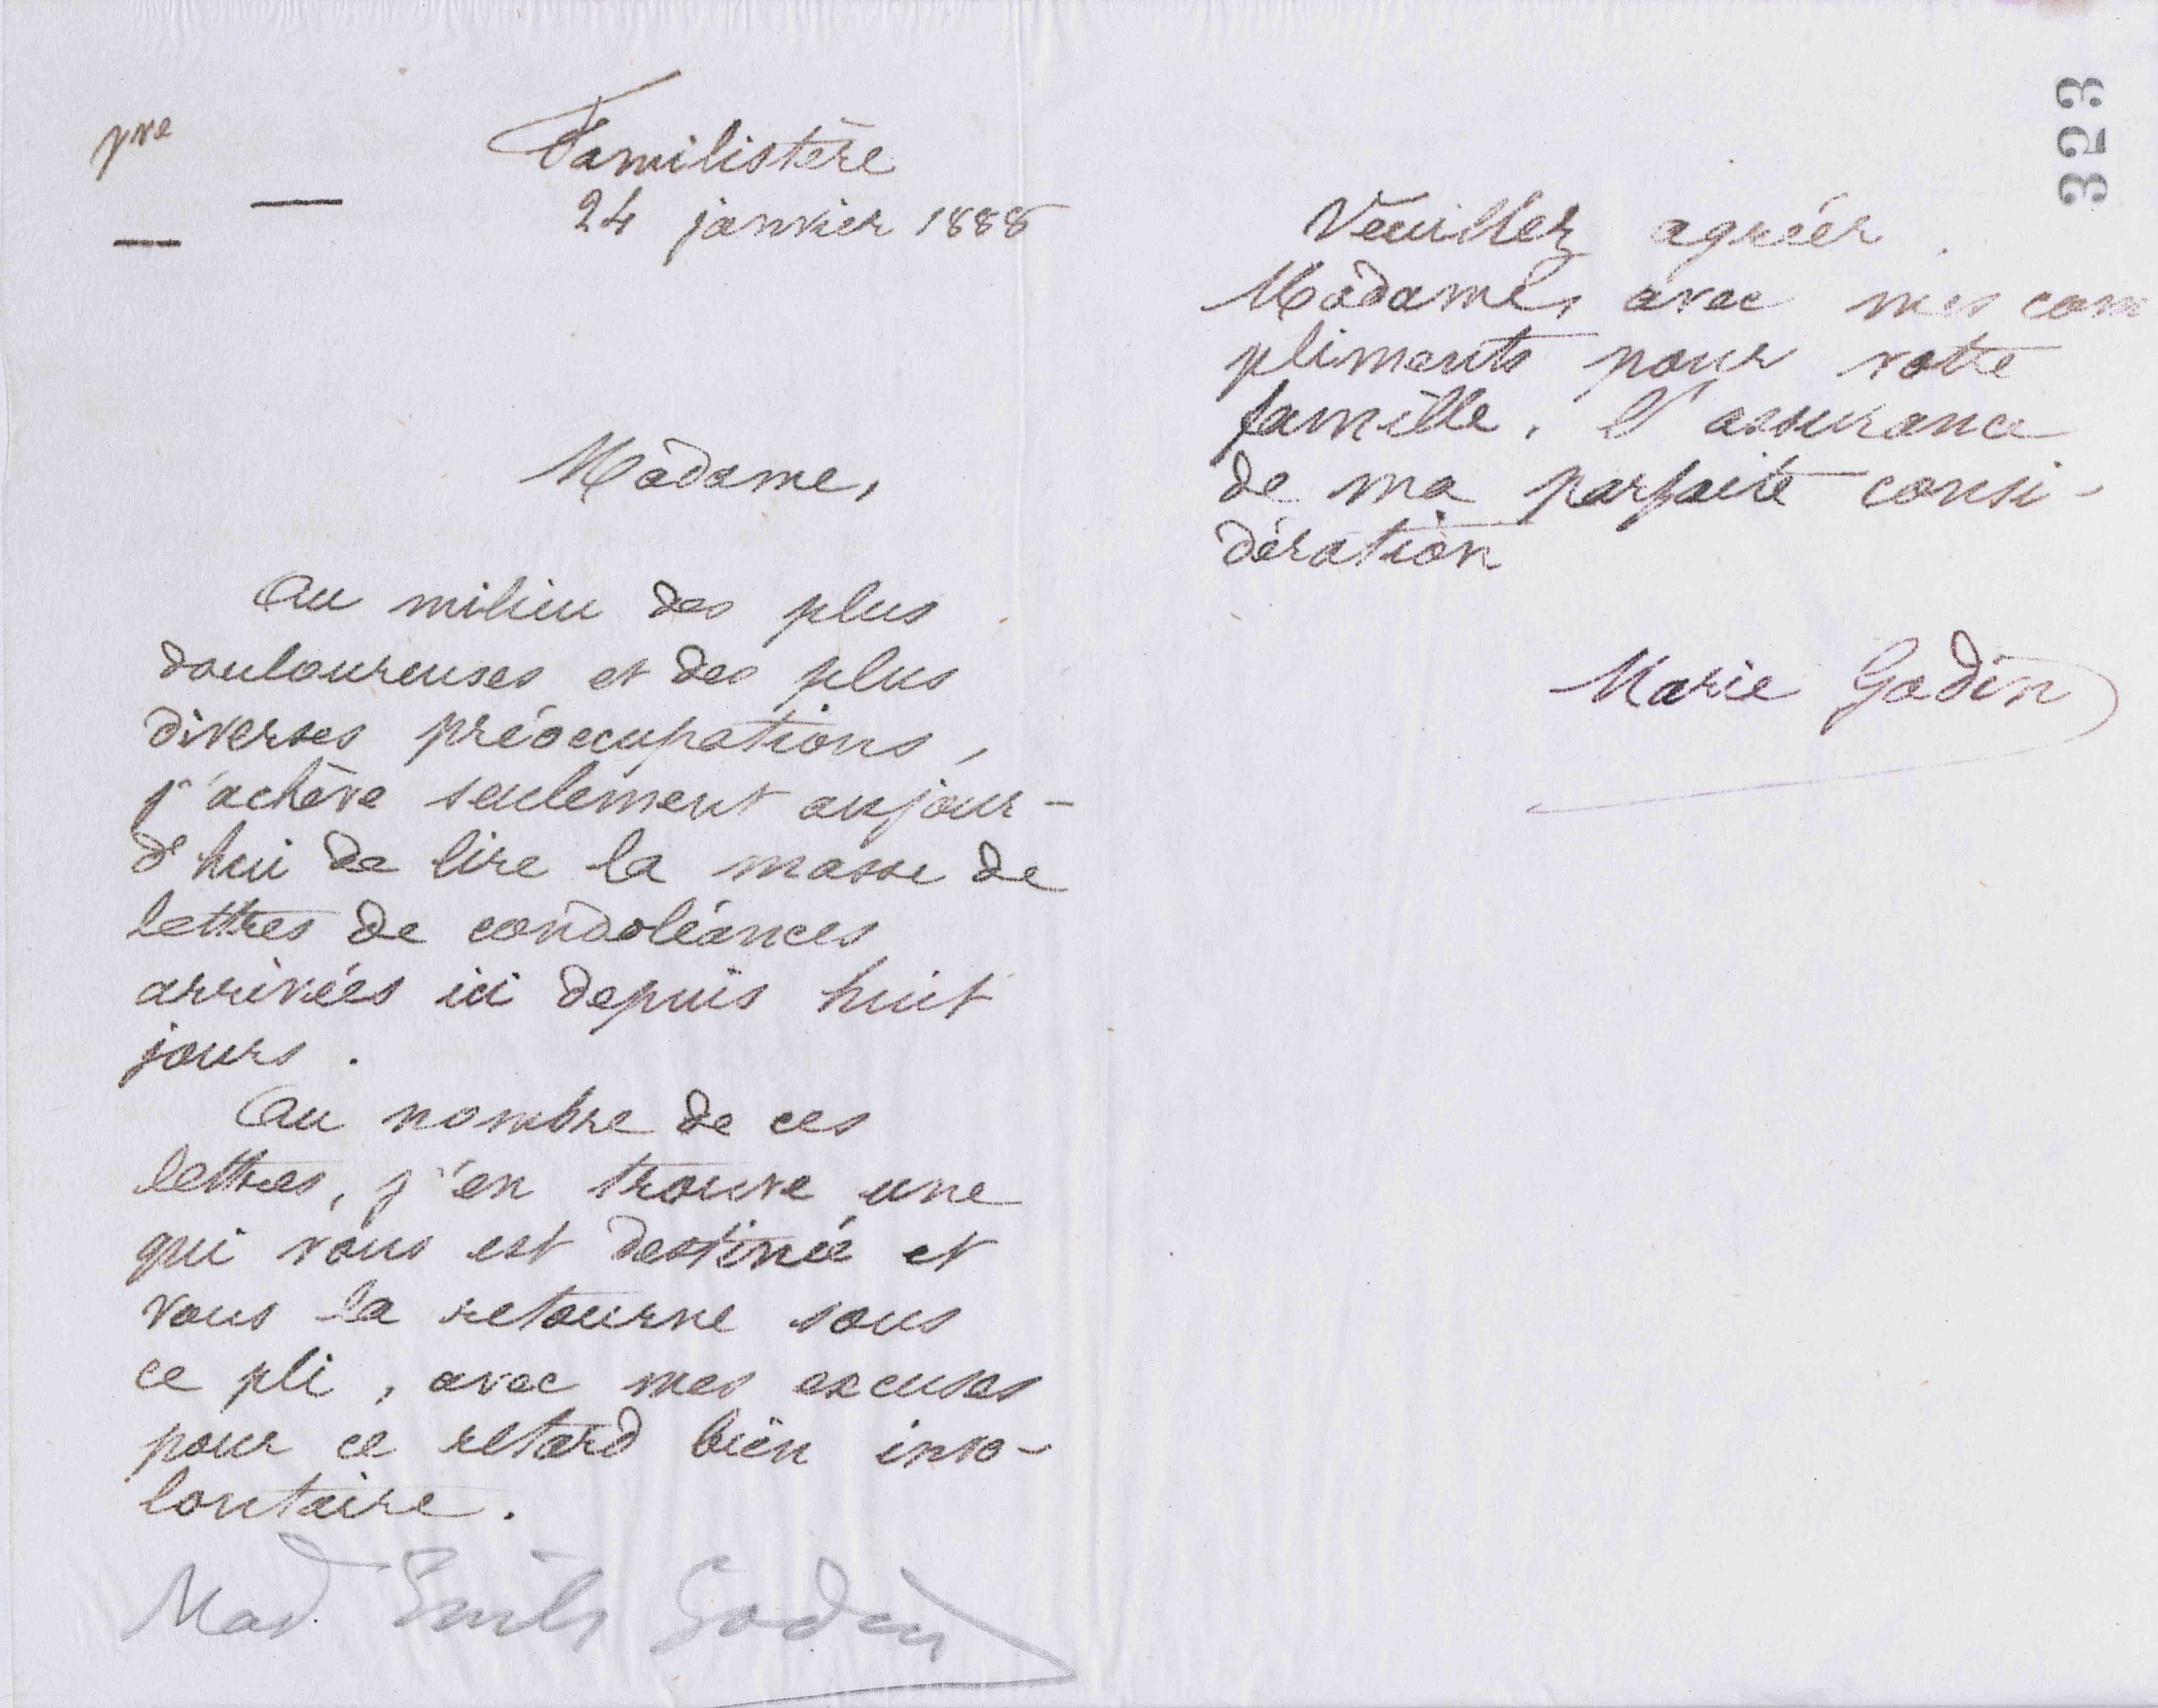 pre
Familistère
24 janvier 1888
Madame,
Au milieu des plus
douloureuses et des plus
diverses préoccupations,
j'achève seulement aujour-
d'hui de lire la masse de
lettres de condoléances
arrivées ici depuis huit
jours.
Au nombre de ces
lettres, j'en trouve une
qui vous est destinée et
vous la retourne sous
ce pli, avec mes excuses
pour ce retard bien invo-
lontaire.
Mad. Emile Godin
323
Veuillez agréer
Madame, avec mes com
pliments pour votre
famille, l'assurance
de ma parfaite consi-
dération
Marie Godin